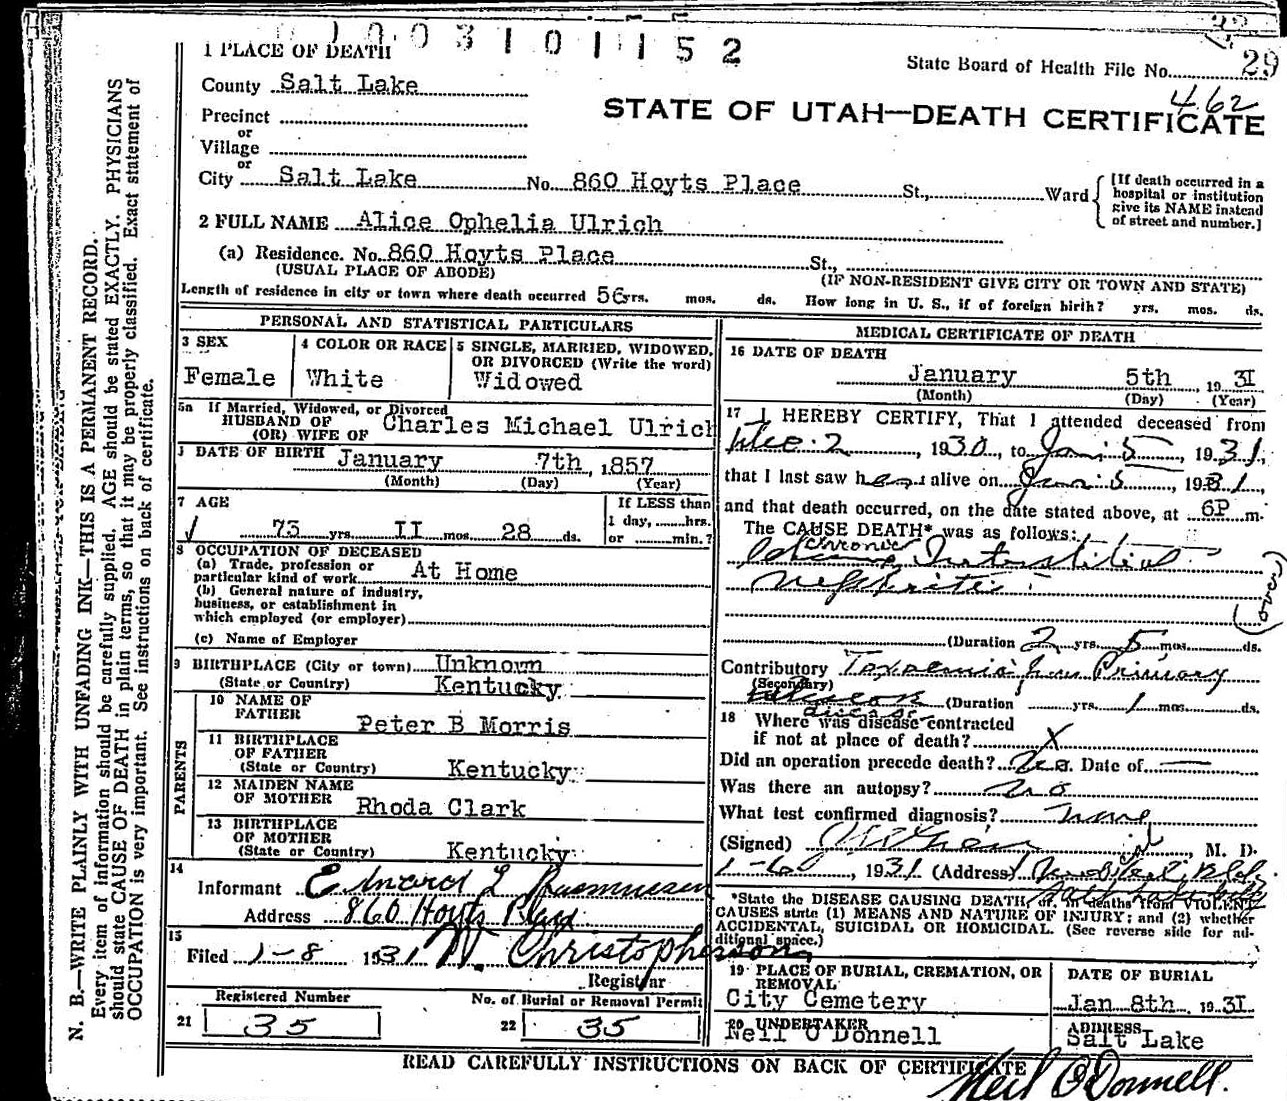 1003101152
1 PLACE OF DEATH
State Board of Health File No. 29
County Salt Lake
462
STATE OF UTAH—DEATH CERTIFICATE
Precinct
or
Village
or
City Salt Lake No. 860 Hoyts Place St., Ward
[If death occurred in a
hospital or institution
give its NAME instead
of street and number.]
2 FULL NAME Alice Ophelia Ulrich
(a) Residence. No. 860 Hoyts Place St.,
(USUAL PLACE OF ABODE) (IF NON-RESIDENT GIVE CITY OR TOWN AND STATE)
Length of residence in city or town where death occurred 56 yrs. mos. ds. How long in U. S., if of foreign birth? yrs. mos. ds.
PERSONAL AND STATISTICAL PARTICULARS
3 SEX
Female
4 COLOR OR RACE
White
5 SINGLE, MARRIED, WIDOWED,
OR DIVORCED (Write the word)
Widowed
5a If Married, Widowed, or Divorced
HUSBAND OF
(OR) WIFE OF Charles Michael Ulrich
DATE OF BIRTH January 7th, 1857
(Month) (Day) (Year)
7 AGE
73 yrs. II mos. 28 ds.
If LESS than
1 day, hrs.
or min.?
8 OCCUPATION OF DECEASED
(a) Trade, profession or
particular kind of work At Home
(b) General nature of industry,
business, or establishment in
which employed (or employer)
(c) Name of Employer
9 BIRTHPLACE (City or town) Unknown
(State or Country) Kentucky
PARENTS
10 NAME OF
FATHER Peter B Morris
11 BIRTHPLACE
OF FATHER
(State or Country) Kentucky
12 MAIDEN NAME
OF MOTHER Rhoda Clark
13 BIRTHPLACE
OF MOTHER
(State or Country) Kentucky
14
Informant Edward L Rasmussen
Address 860 Hoyts Place
15
Filed 1-8 1931 W. Christopherson
Registrar
Registered Number
21 35
No. of Burial or Removal Permit
22 35
MEDICAL CERTIFICATE OF DEATH
16 DATE OF DEATH
January 5th, 1931
(Month) (Day) (Year)
17 I HEREBY CERTIFY, That I attended deceased from
Dec. 2, 1930, to Jan 5, 1931,
that I last saw her alive on Jan 5, 1931,
and that death occurred, on the date stated above, at 6P m.
The CAUSE DEATH* was as follows:
Chronic Interstitial
Nephritis
(over)
(Duration 2 yrs. 5 mos. ds.
Contributory Toxaemia from Primary
(Secondary)
disease (Duration yrs. 1 mos. ds.
18 Where was disease contracted
if not at place of death? X
Did an operation precede death? No. Date of —
Was there an autopsy? no
What test confirmed diagnosis? none
(Signed) M. D.
1-6, 1931 (Address)
*State the DISEASE CAUSING DEATH, or, in deaths from VIOLENT
CAUSES state (1) MEANS AND NATURE OF INJURY; and (2) whether
ACCIDENTAL, SUICIDAL OR HOMICIDAL. (See reverse side for ad-
ditional space.)
19 PLACE OF BURIAL, CREMATION, OR
REMOVAL
City Cemetery
DATE OF BURIAL
Jan 8th 1931
20 UNDERTAKER
Neil O'Donnell
ADDRESS
Salt Lake
READ CAREFULLY INSTRUCTIONS ON BACK OF CERTIFICATE
Neil O'Donnell.
N. B.—WRITE PLAINLY WITH UNFADING INK—THIS IS A PERMANENT RECORD.
Every item of information should be carefully supplied. AGE should be stated EXACTLY. PHYSICIANS
should state CAUSE OF DEATH in plain terms, so that it may be properly classified. Exact statement of
OCCUPATION is very important. See instructions on back of certificate.